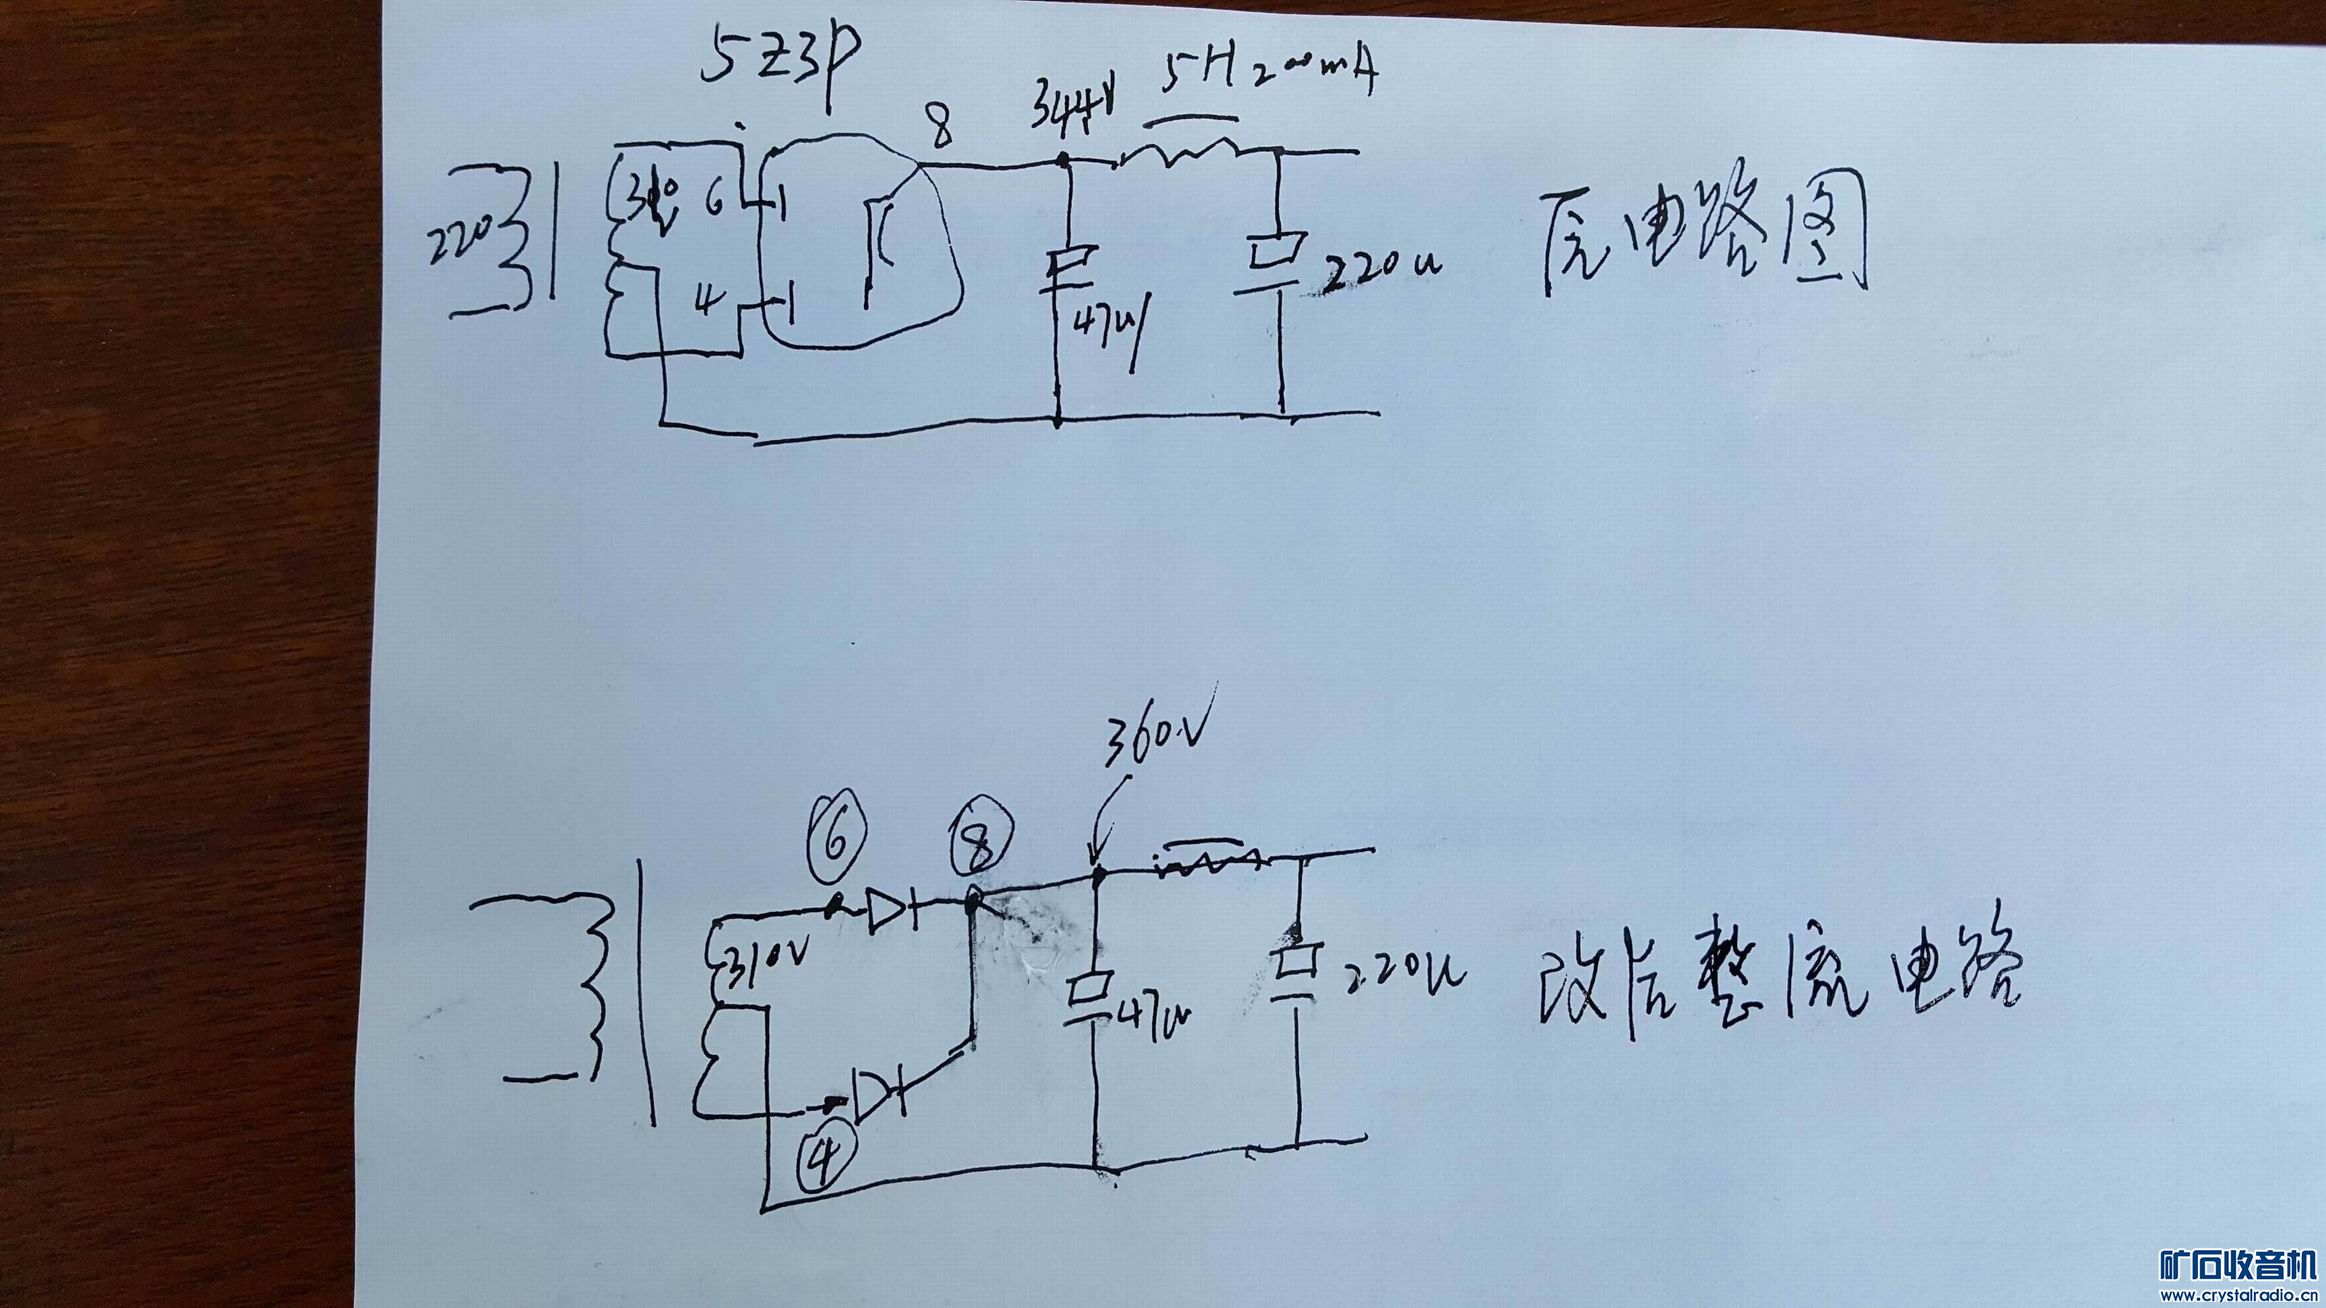 5Z3P
8
344V
5H 200mA
220
310V
6
4
47u
220u
原电路图
360V
6
8
310V
4
47u
220u
改后整流电路
矿石收音机
www.crystalradio.cn